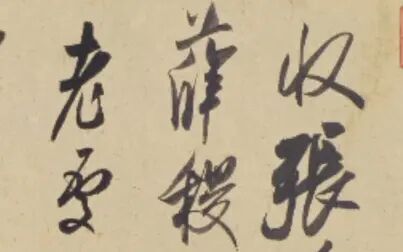 收張
薛稷
老更